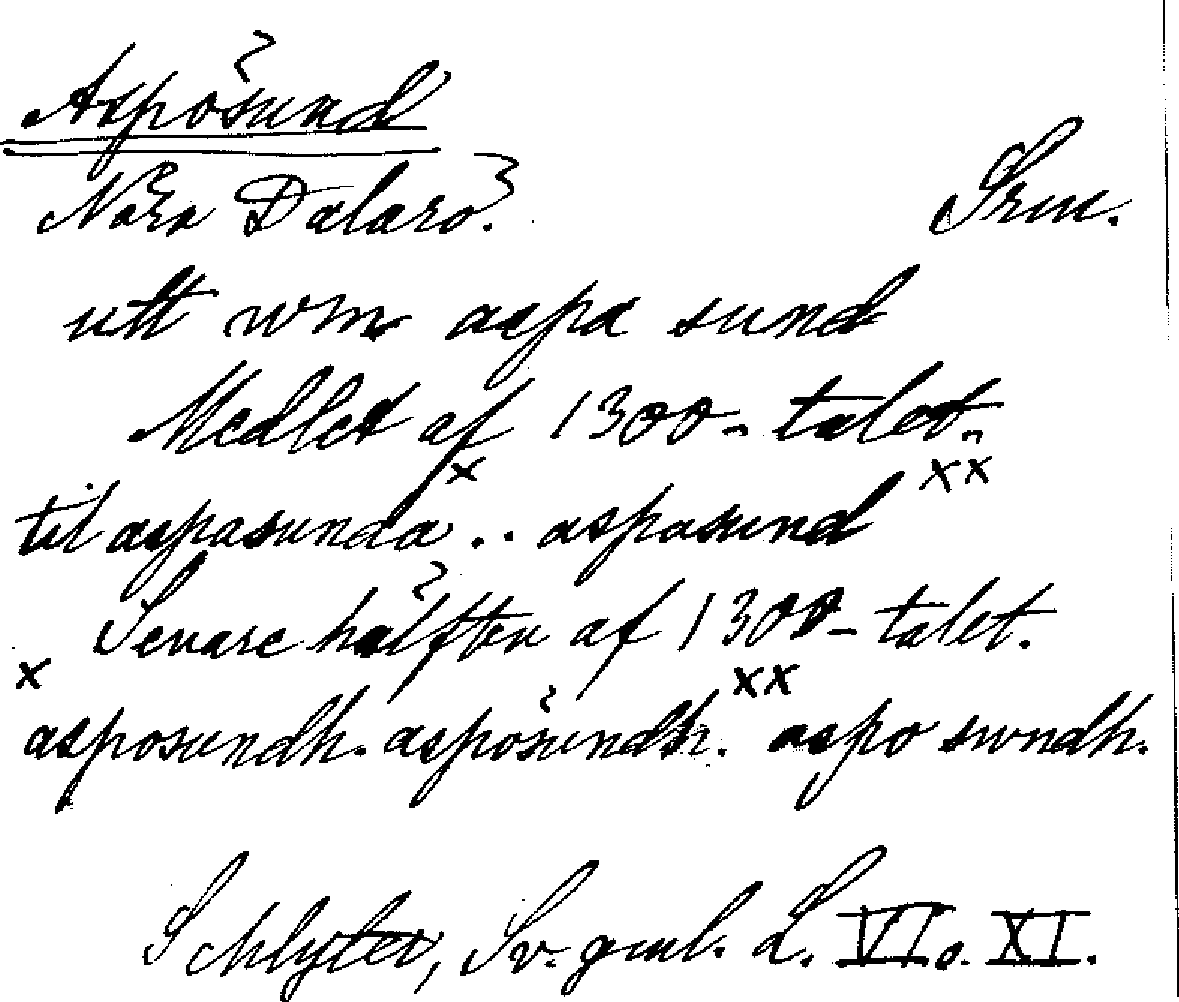 Aspösund
Nära Dalarö.
Srm.
utt wm aspa sund
Medlet af 1300-talet.
x xx
til aspasunda .. aspasund
Senare hälften af 1300-talet.
x xx
asposundh. aspösundh. aspo swndh.
Schlyter, Sv. gml. L. VI o. XI.